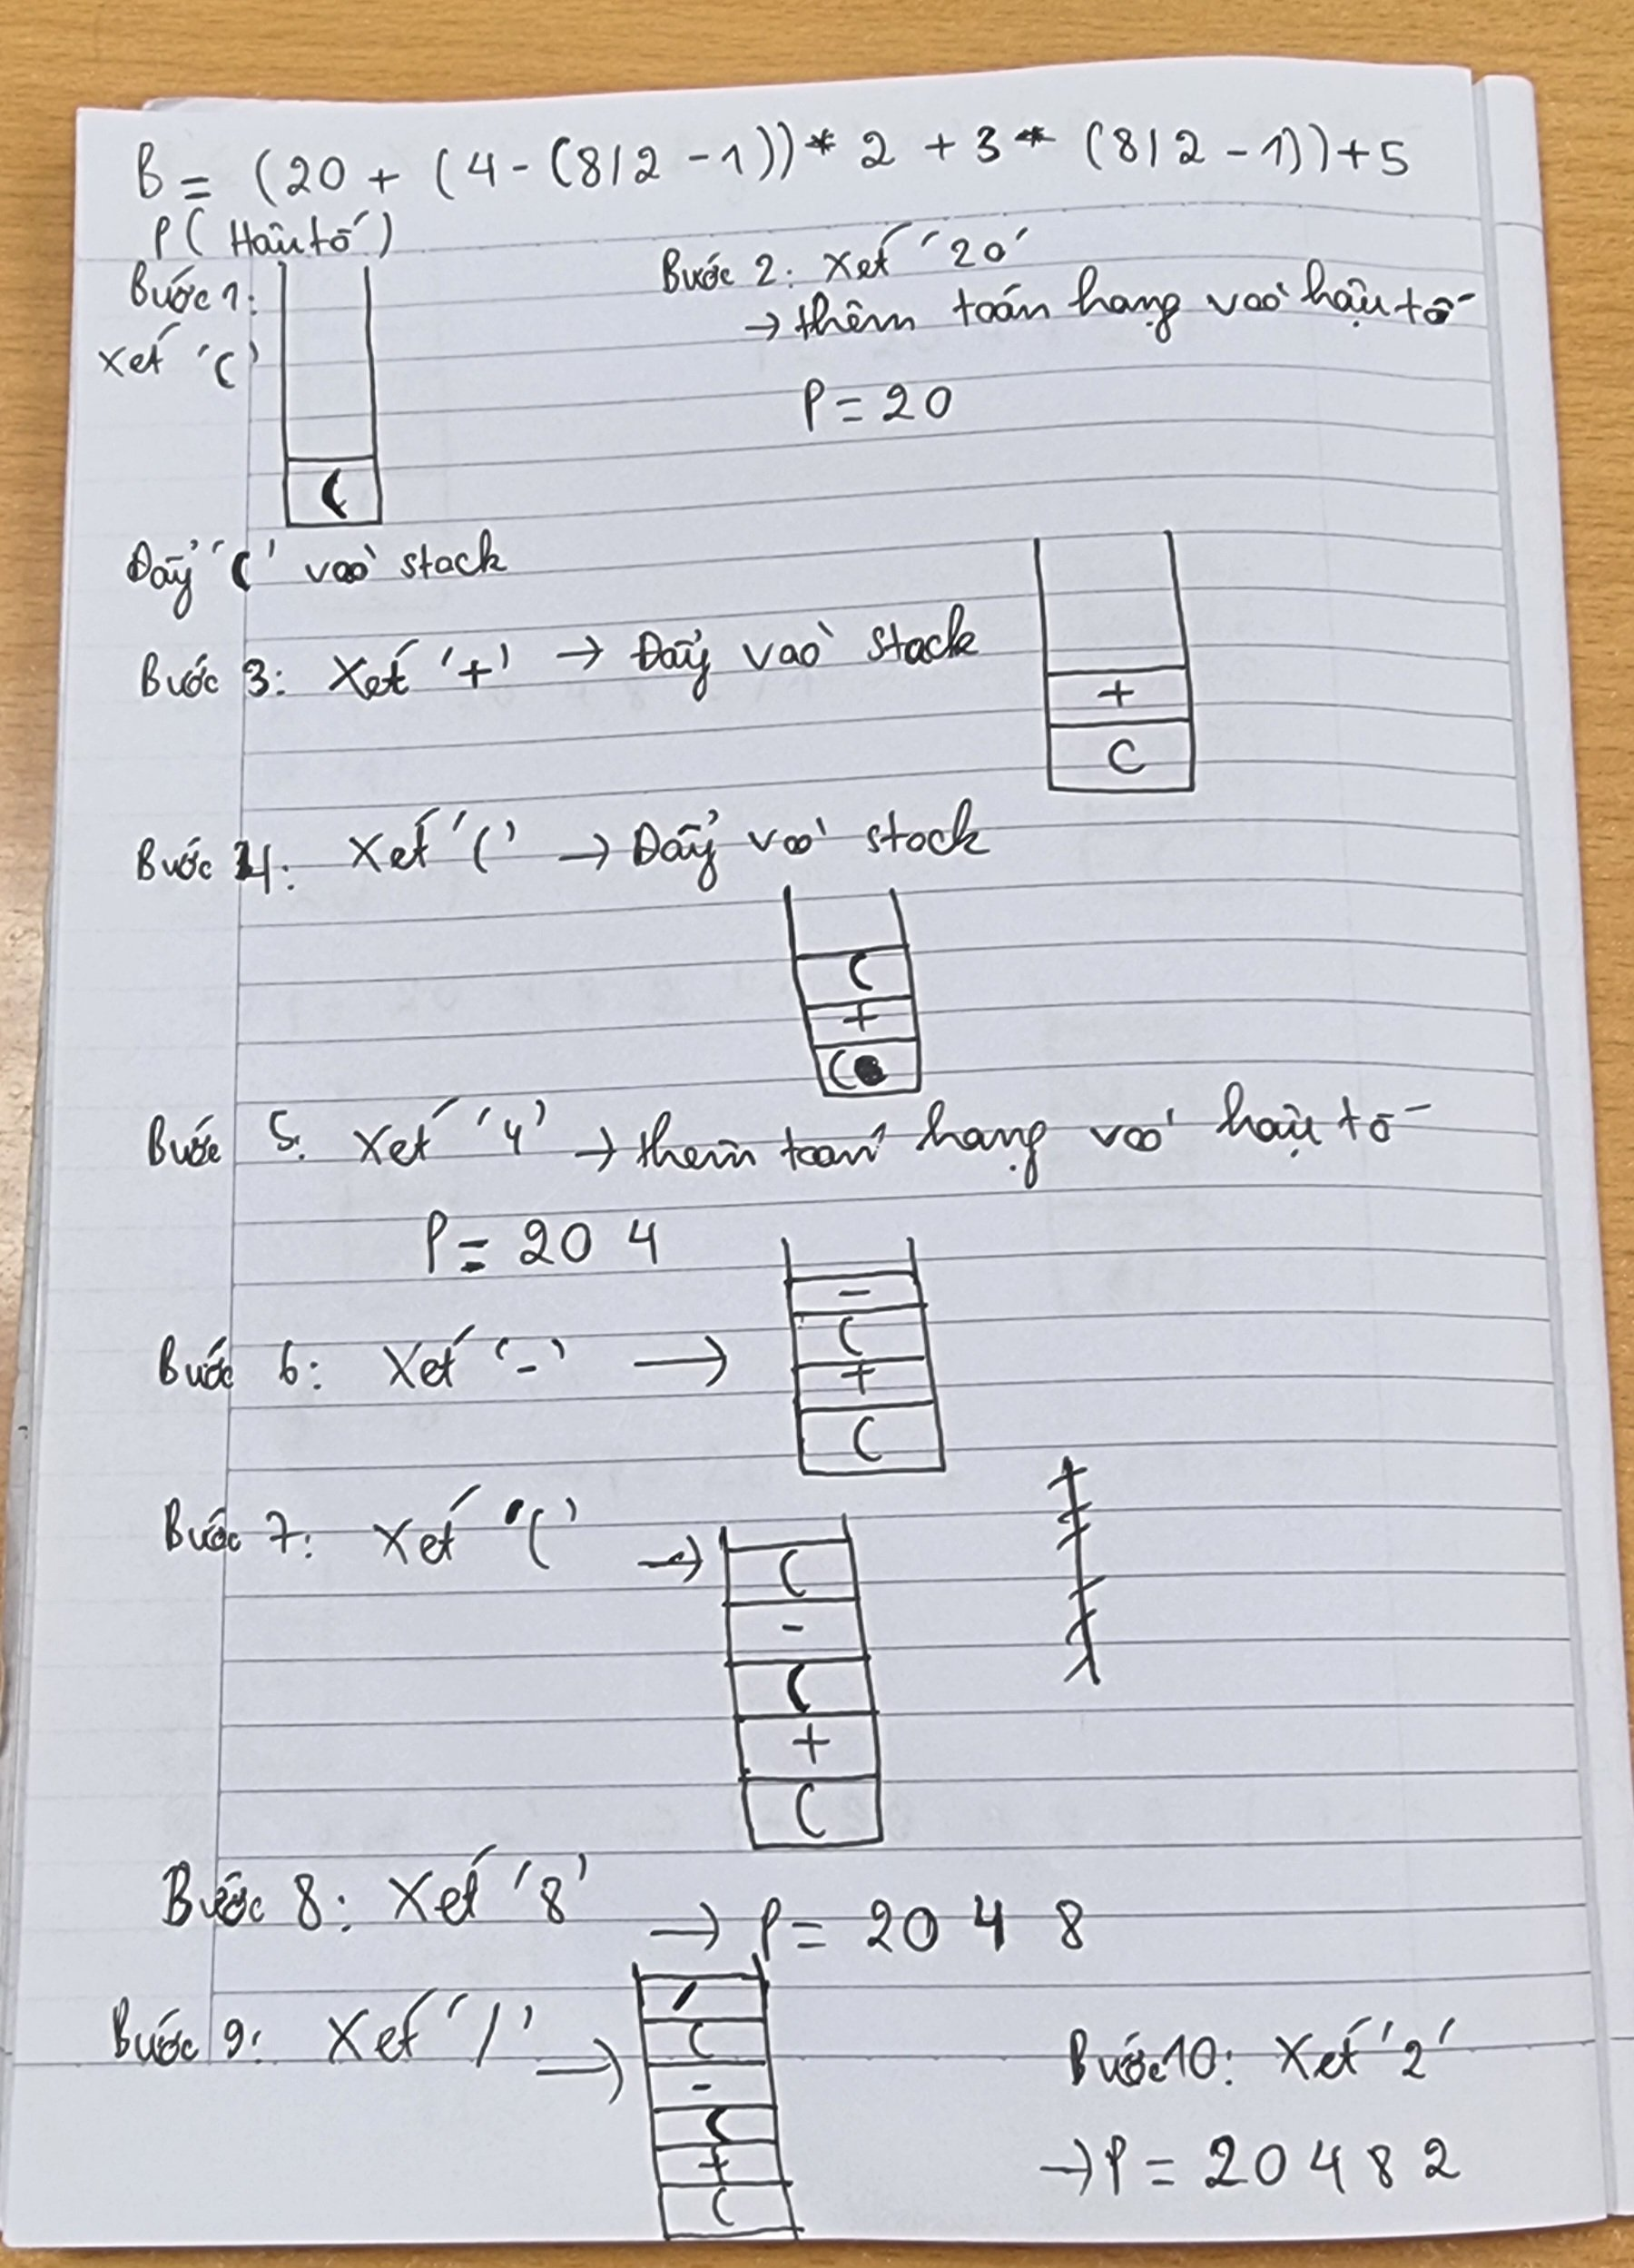 B = (20 + (4 - (8/2 - 1)) * 2 + 3 * (8/2 - 1)) + 5
P ( Hậu tố )
Bước 1:
Xét '('
(
Đẩy '(' vào stack
Bước 2: Xét '20'
→ thêm toán hạng vào hậu tố
P = 20
Bước 3: Xét '+' → Đẩy vào stack
+
(
Bước 4: Xét '(' → Đẩy vào stack
(
+
(
Bước 5. Xét '4' → thêm toán hạng vào hậu tố
P = 20 4
Bước 6: Xét '-' →
-
(
+
(
Bước 7: Xét '(' →
(
-
(
+
(
Bước 8: Xét '8' → P = 20 4 8
Bước 9: Xét '/' →
/
(
-
(
+
(
Bước 10: Xét '2'
→ P = 20 4 8 2